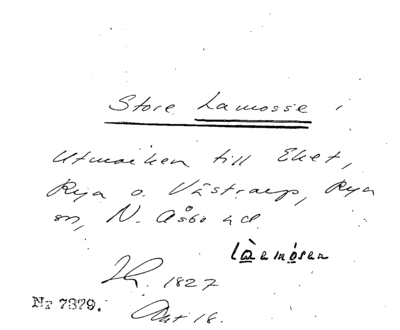 Store Lamosse i
Utmarken till Eket,
Rya o. Västraryp, Rya
sn, N. Åsbo hd.
làemósen
1827
Nr 7379.
Akt 18.